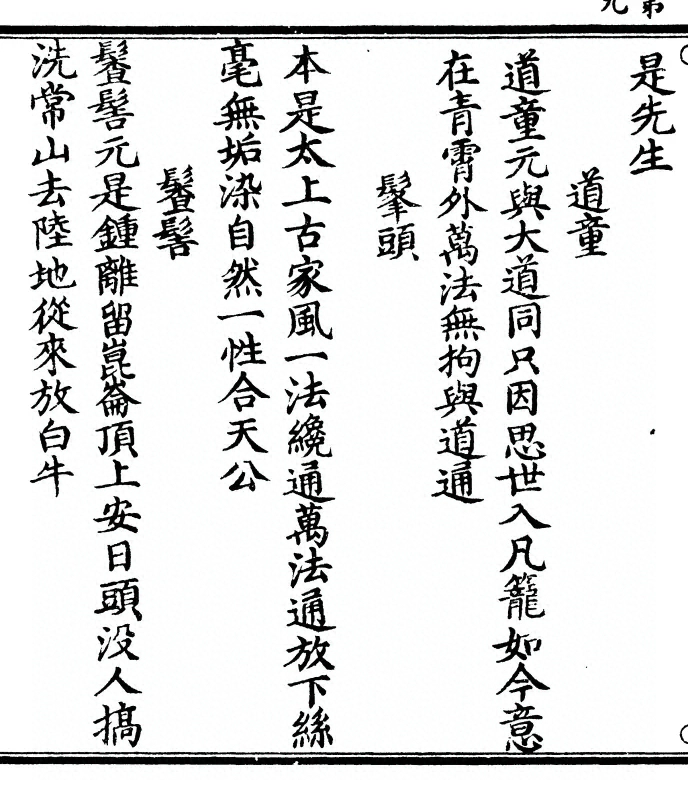 第
九
是先生
道童
道童元與大道同只因思世入凡籠如今意
在青霄外萬法無拘與道通
鬅頭
本是太上古家風一法纔通萬法通放下絲
毫無垢染自然一性合天公
鬠髻
鬠髻元是鍾離留崑崙頂上安日頭没人搞
洗常山去陸地從來放白牛